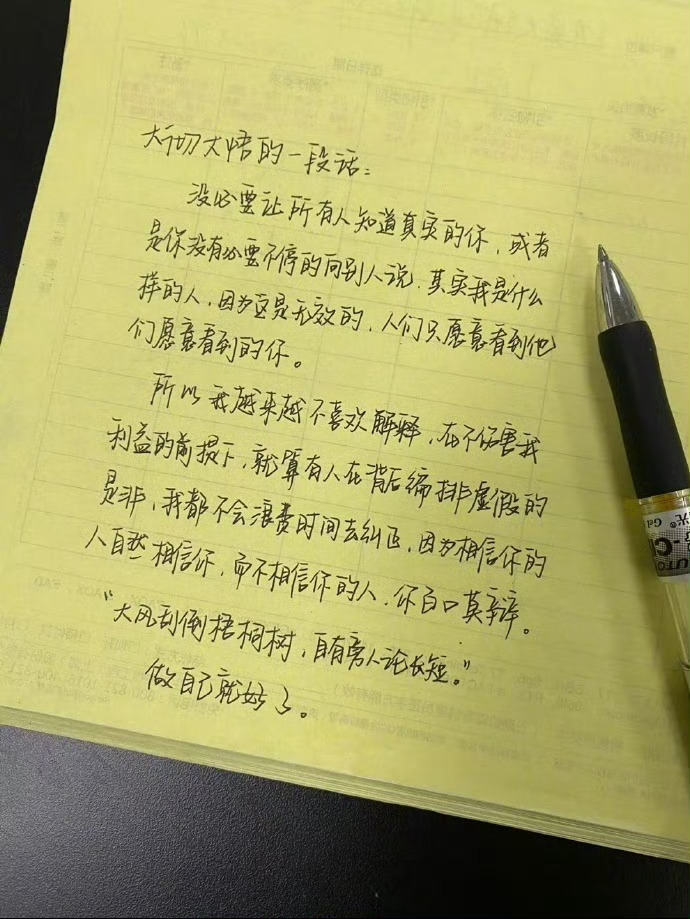 大彻大悟的一段话：
没必要让所有人知道真实的你，或者
是你没有必要不停的向别人说，其实我是什么
样的人，因为这是无效的，人们只愿意看到他
们愿意看到的你。
所以我越来越不喜欢解释，在不伤害我
利益的前提下，就算有人在背后编排虚假的
是非，我都不会浪费时间去纠正，因为相信你的
人自然相信你，而不相信你的人，你百口莫辩。
“大风刮倒梧桐树，自有旁人论长短。”
做自己就好了。